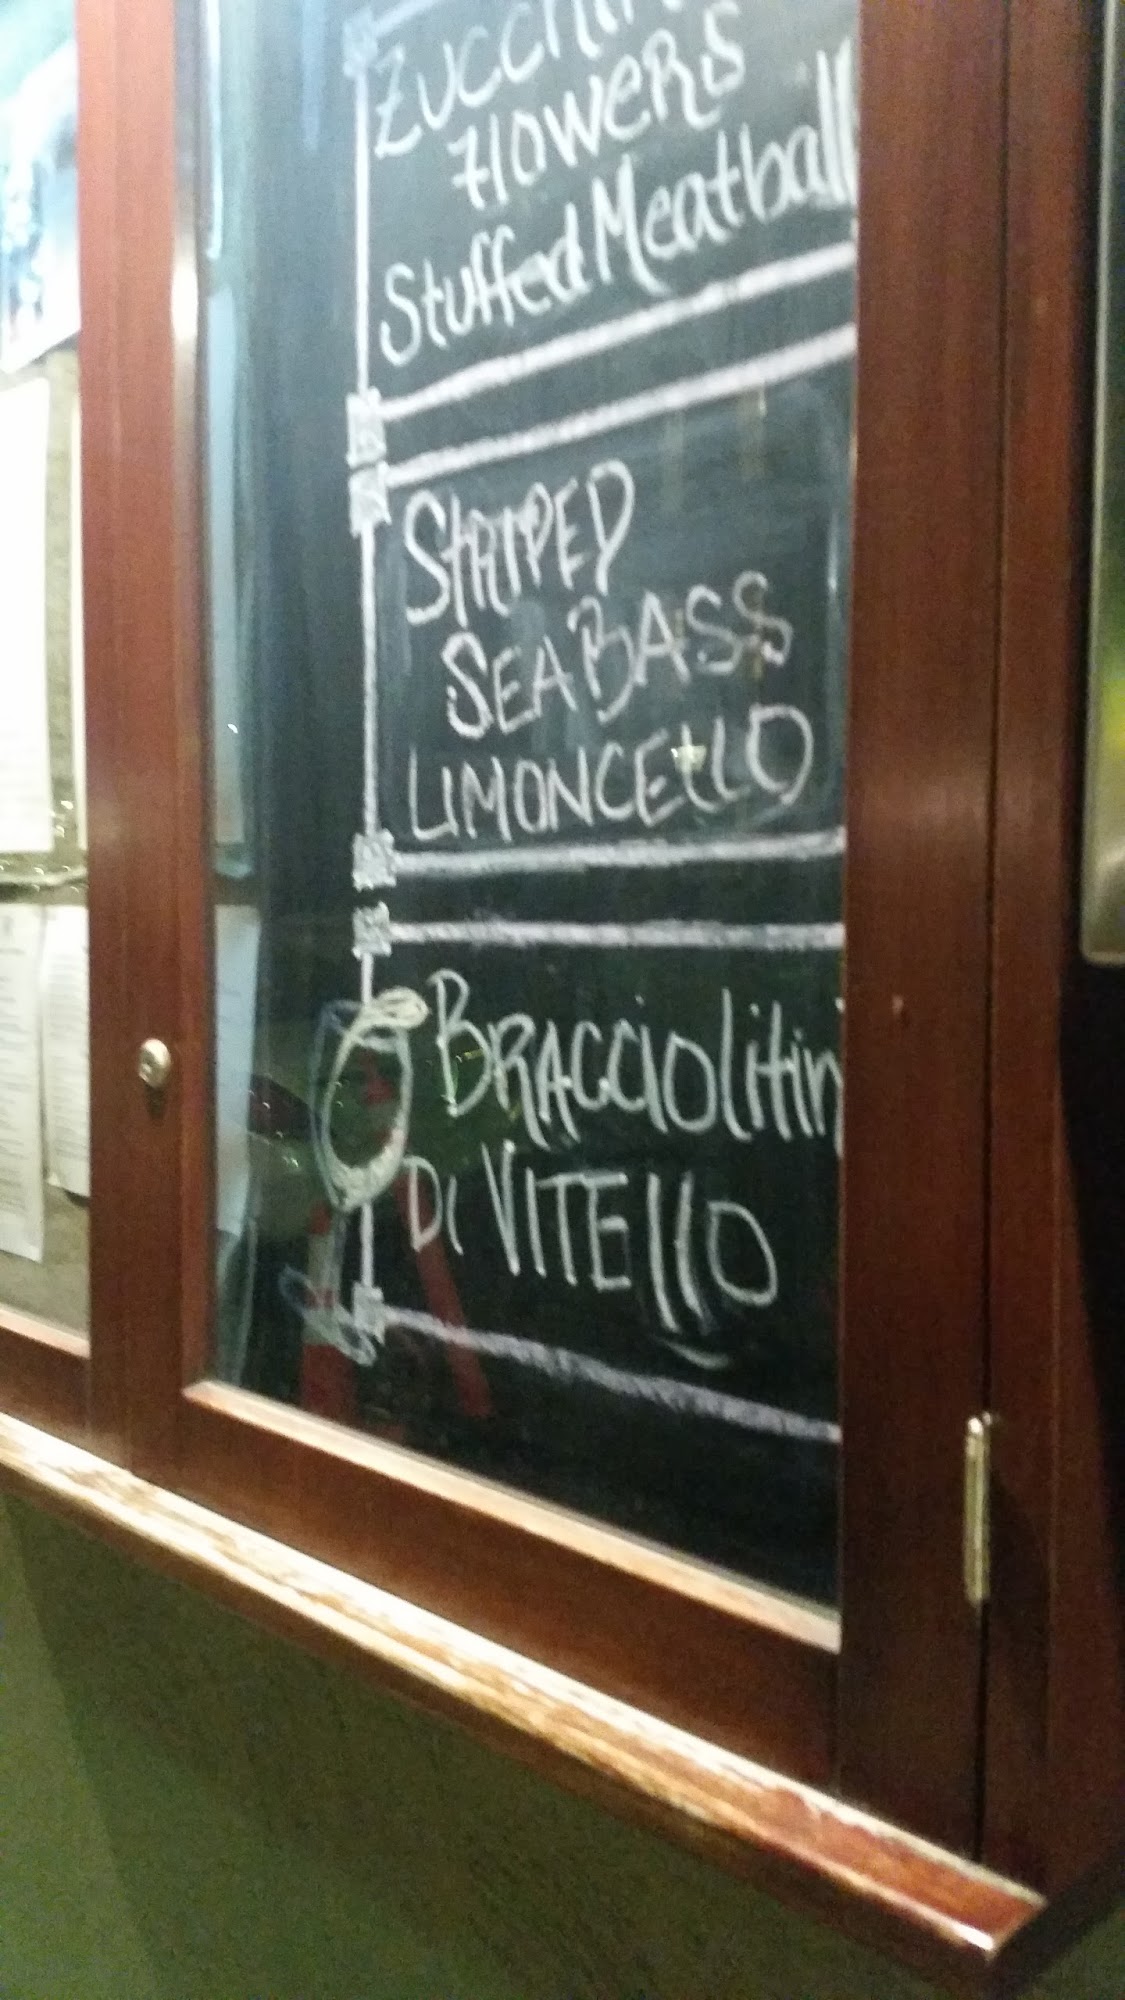 Zucchin
Flowers
Stuffed Meatball
STRIPED
SEA BASS
LIMONCELLO
BRACCIOlitin
Di VITEllO